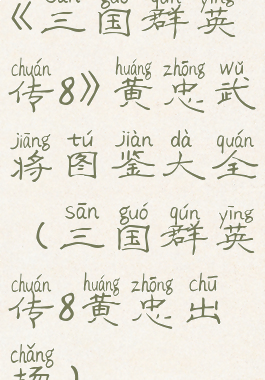 sān guó qún yīng
《三国群英
chuán huáng zhōng wǔ
传8》黄忠武
jiāng tú jiàn dà quán
将图鉴大全
sān guó qún yīng
（三国群英
chuán huáng zhōng chū
传8黄忠出
chǎng
场）